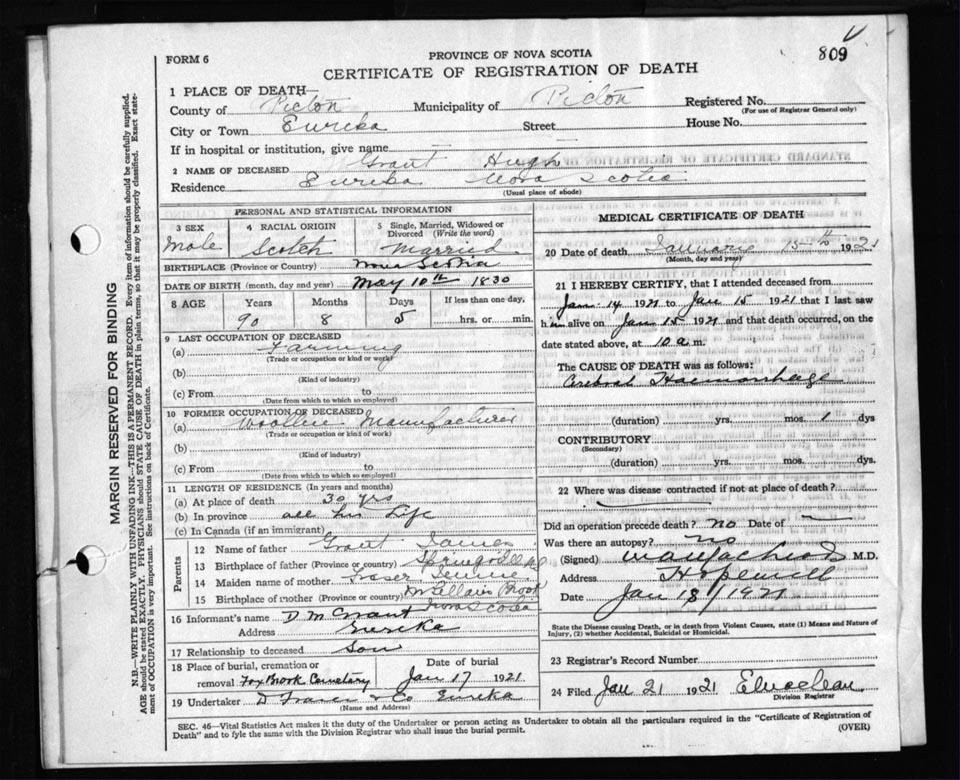 FORM 6
PROVINCE OF NOVA SCOTIA
809
CERTIFICATE OF REGISTRATION OF DEATH
1 PLACE OF DEATH
County of Pictou Municipality of Pictou Registered No.
(For use of Registrar General only)
City or Town Eureka Street House No.
If in hospital or institution, give name
2 NAME OF DECEASED Grant Hugh
Residence Eureka Nova Scotia
(Usual place of abode)
PERSONAL AND STATISTICAL INFORMATION
3 SEX
Male
4 RACIAL ORIGIN
Scotch
5 Single, Married, Widowed or Divorced (Write the word)
Married
BIRTHPLACE (Province or Country) Nova Scotia
DATE OF BIRTH (month, day and year) May 10th 1830
8 AGE Years Months Days If less than one day,
90 8 5 hrs. or min.
9 LAST OCCUPATION OF DECEASED
(a) Farming
(Trade or occupation or kind or work)
(b)
(Kind of industry)
(c) From to
(Date from which to which so employed)
10 FORMER OCCUPATION OF DECEASED
(a) Woollen Manufacturer
(Trade or occupation or kind of work)
(b)
(Kind of industry)
(c) From to
(Date from which to which so employed)
11 LENGTH OF RESIDENCE (In years and months)
(a) At place of death 30 yrs
(b) In province all his Life
(c) In Canada (if an immigrant)
Parents
12 Name of father Grant James
13 Birthplace of father (Province or country) Springville
14 Maiden name of mother Fraser
15 Birthplace of mother (Province or country) McLellans Brook
Nova Scotia
16 Informant's name D M Grant
Address Eureka
17 Relationship to deceased Son
18 Place of burial, cremation or removal Fox Brook Cemetary
Date of burial
Jan 17 1921
19 Undertaker D Fraser & Co Eureka
(Name and Address)
MEDICAL CERTIFICATE OF DEATH
20 Date of death January 15th 1921
(Month, day and year)
21 I HEREBY CERTIFY, that I attended deceased from
Jan 14 1921 to Jan 15 1921 that I last saw
him alive on Jan 15 1921 and that death occurred, on the
date stated above, at 10 a.m.
The CAUSE OF DEATH was as follows:
Cerebral Haemorrhage
(duration) yrs. mos. 1 dys
CONTRIBUTORY
(Secondary)
(duration) yrs. mos. dys.
22 Where was disease contracted if not at place of death?
Did an operation precede death? no Date of
Was there an autopsy? no
(Signed) M.D.
Address Hopewell
Date Jan 18/1921
State the Disease causing Death, or in death from Violent Causes, state (1) Means and Nature of
Injury, (2) whether Accidental, Suicidal or Homicidal.
23 Registrar's Record Number
24 Filed Jan 21 1921
Division Registrar
SEC. 46—Vital Statistics Act makes it the duty of the Undertaker or person acting as Undertaker to obtain all the particulars required in the "Certificate of Registration of
Death" and to fyle the same with the Division Registrar who shall issue the burial permit.
(OVER)
MARGIN RESERVED FOR BINDING
N.B.—WRITE PLAINLY WITH UNFADING INK—THIS IS A PERMANENT RECORD. Every item of information should be carefully supplied.
AGE should be stated EXACTLY. PHYSICIANS should STATE CAUSE OF DEATH in plain terms, so that it may be properly classified. Exact state-
ment of OCCUPATION is very important. See instructions on back of Certificate.